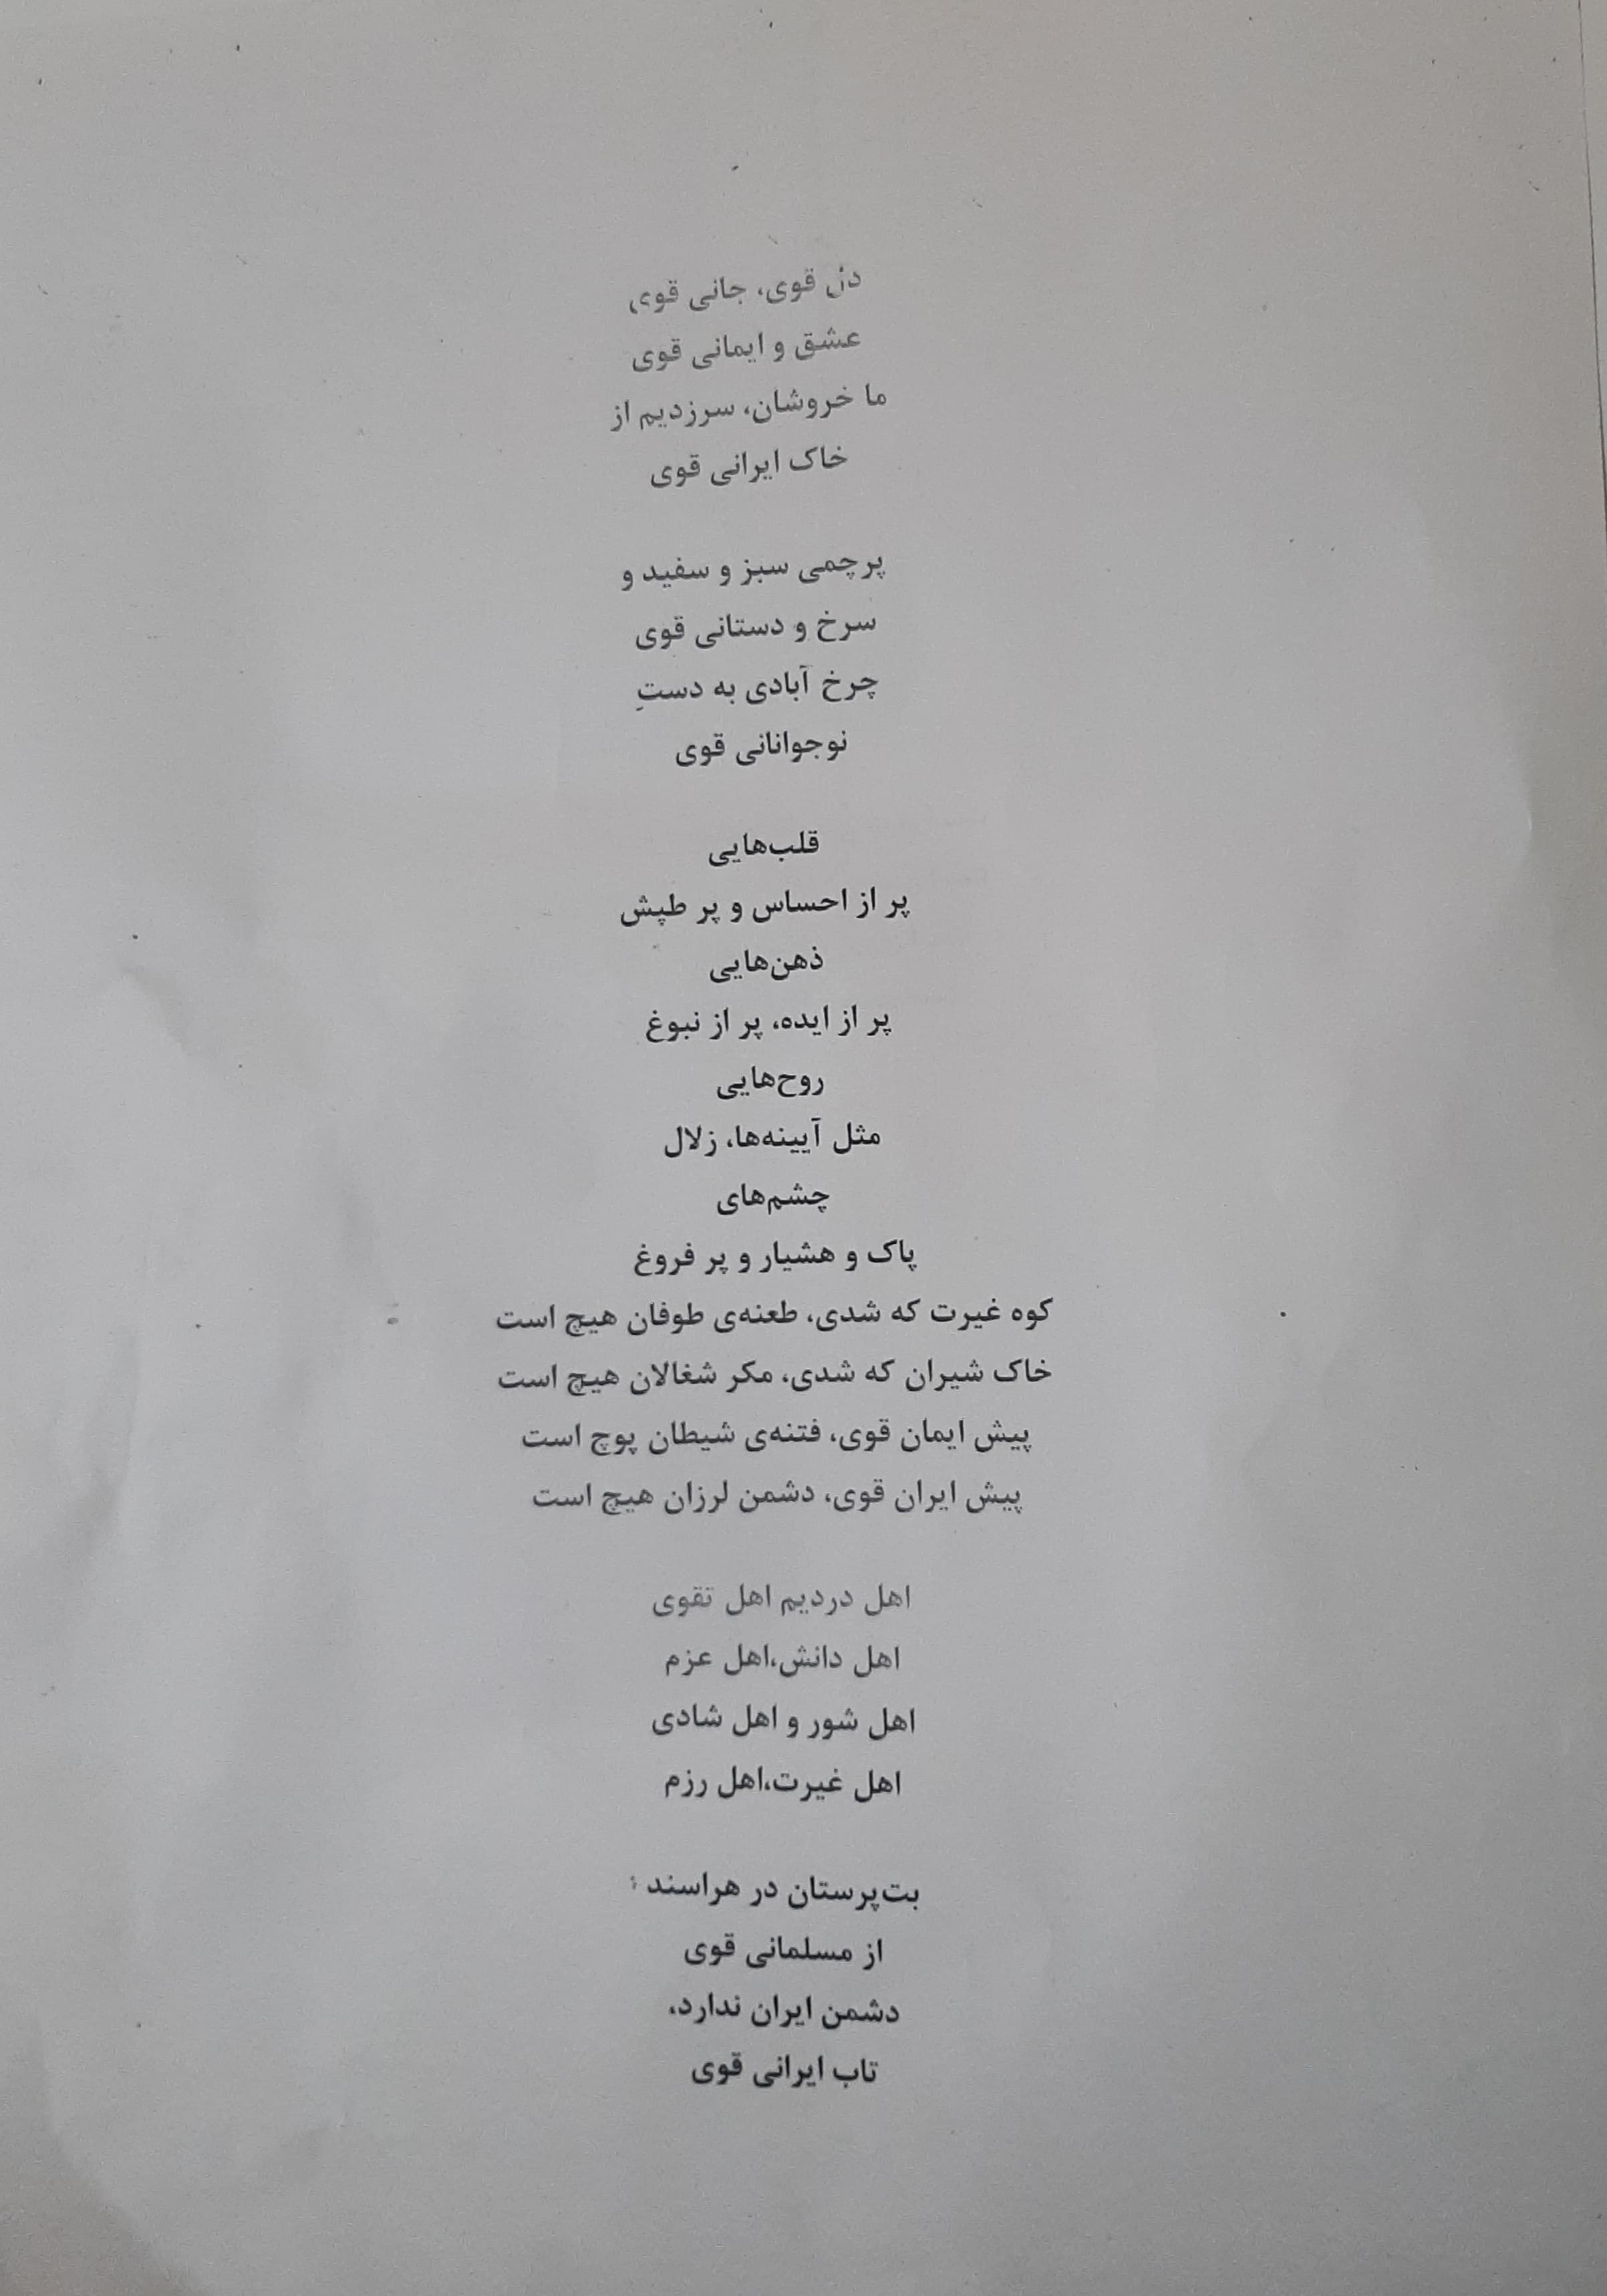 دل قوی، جانی قوی
عشق و ایمانی قوی
ما خروشان، سرزدیم از
خاک ایرانی قوی
پرچمی سبز و سفید و
سرخ و دستانی قوی
چرخ آبادی به دستِ
نوجوانانی قوی
قلب‌هایی
پر از احساس و پر طپش
ذهن‌هایی
پر از ایده، پر از نبوغ
روح‌هایی
مثل آیینه‌ها، زلال
چشم‌های
پاک و هشیار و پر فروغ
کوه غیرت که شدی، طعنه‌ی طوفان هیچ است
خاک شیران که شدی، مکر شغالان هیچ است
پیش ایمان قوی، فتنه‌ی شیطان پوچ است
پیش ایران قوی، دشمن لرزان هیچ است
اهل دردیم اهل تقوی
اهل دانش،اهل عزم
اهل شور و اهل شادی
اهل غیرت،اهل رزم
بت‌پرستان در هراسند
از مسلمانی قوی
دشمن ایران ندارد،
تاب ایرانی قوی